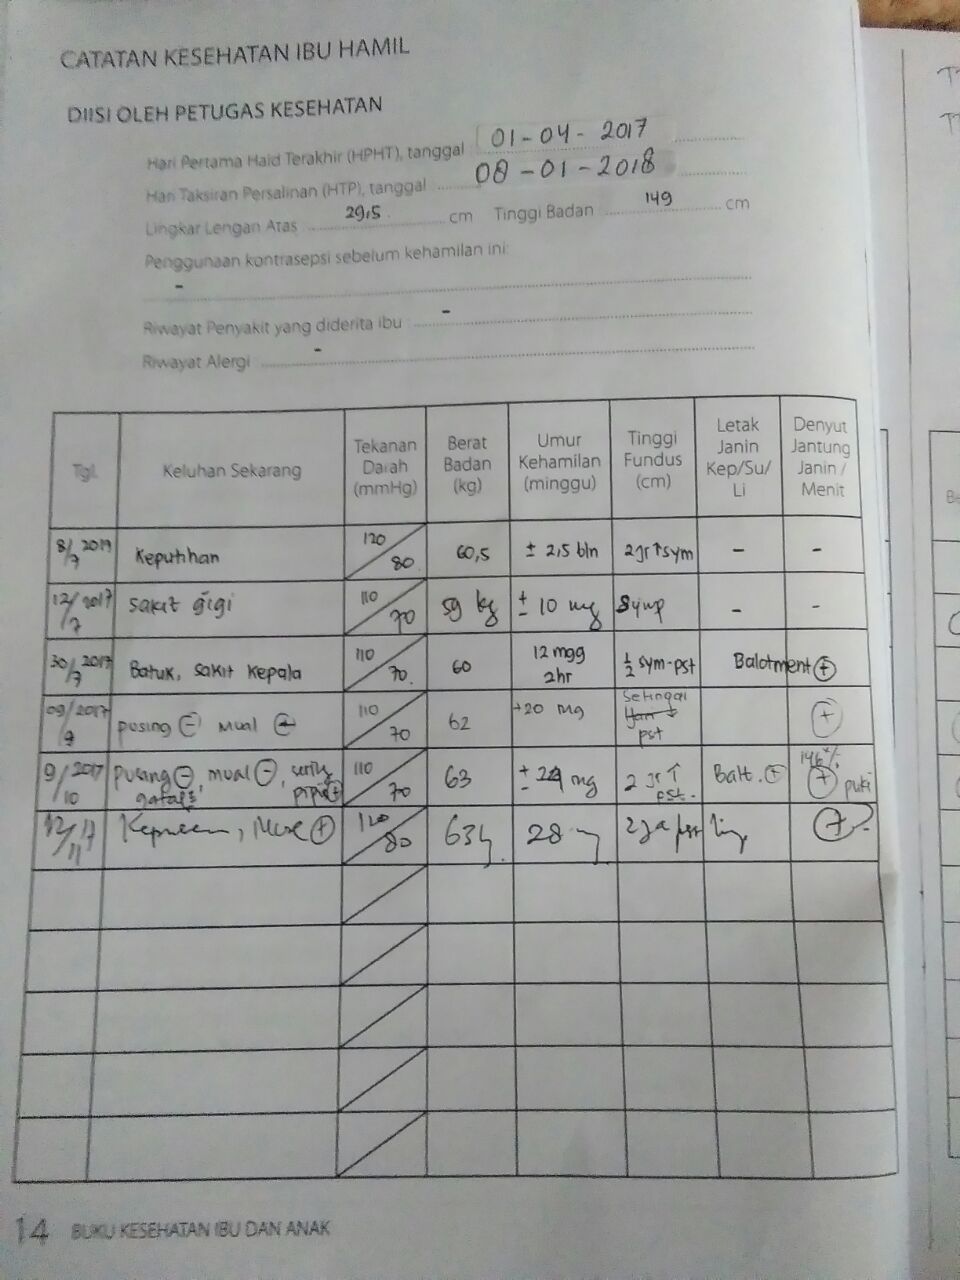 CATATAN KESEHATAN IBU HAMIL
DIISI OLEH PETUGAS KESEHATAN
Hari Pertama Haid Terakhir (HPHT), tanggal 01-04-2017
Hari Taksiran Persalinan (HTP), tanggal 08-01-2018
Lingkar Lengan Atas 29,5 cm Tinggi Badan 149 cm
Penggunaan kontrasepsi sebelum kehamilan ini:
-
Riwayat Penyakit yang diderita ibu -
Riwayat Alergi -
Tgl. Keluhan Sekarang Tekanan Darah (mmHg) Berat Badan (kg) Umur Kehamilan (minggu) Tinggi Fundus (cm) Letak Janin Kep/Su/Li Denyut Jantung Janin / Menit
8/7 Keputihan 120/80 60,5 ± 2,5 bln 2jr↑sym - -
12/7 2017 sakit gigi 110/70 59 kg ± 10 mg Symp - -
30/7 2017 Batuk, sakit kepala 110/70 60 12 mgg 2hr ½ sym-pst Balotment (+)
09/9 2017 pusing (-) mual 110/70 62 +20 mg Setinggi pst (+)
9/10 2017 pusang (-), mual (-), 110/70 63 ± mg 2 jr ↑ pst. Ball. (+) 146 (+) puki
12/11 17 (+) 120/80 63 28 (+)
14 BUKU KESEHATAN IBU DAN ANAK